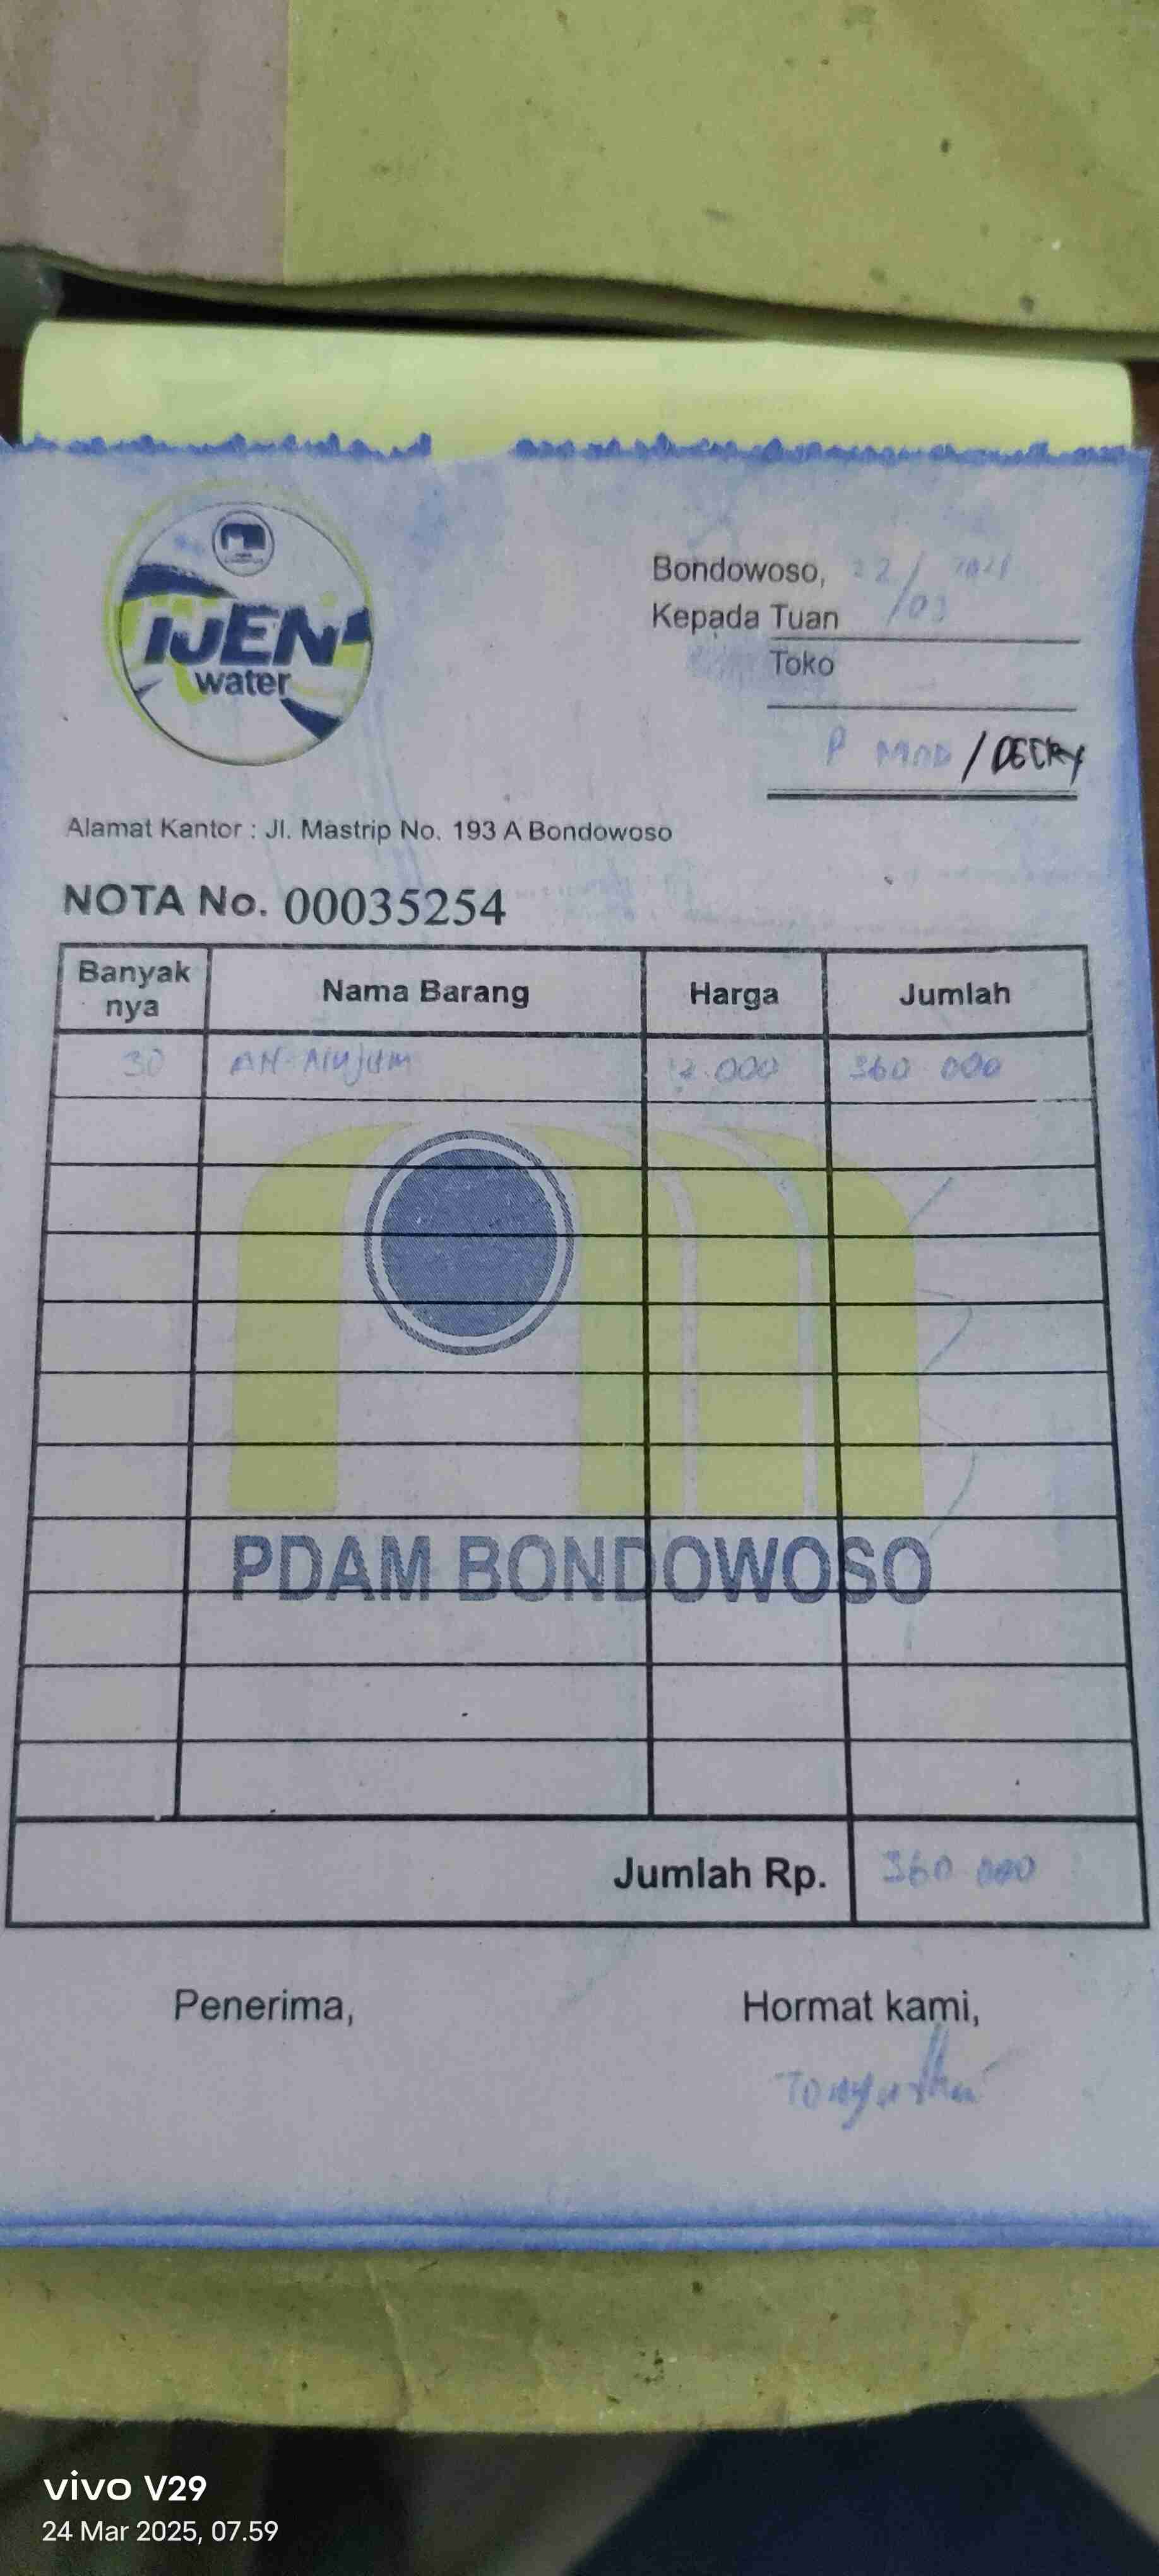 IJEN
water
Bondowoso, 22/03
Kepada Tuan
Toko
P MAD / DECKY
Alamat Kantor : Jl. Mastrip No. 193 A Bondowoso
NOTA No. 00035254
Banyak nya Nama Barang Harga Jumlah
30 AN-Nujum 12.000 360 000
PDAM BONDOWOSO
Jumlah Rp. 360 000
Penerima, Hormat kami,
vivo V29
24 Mar 2025, 07.59